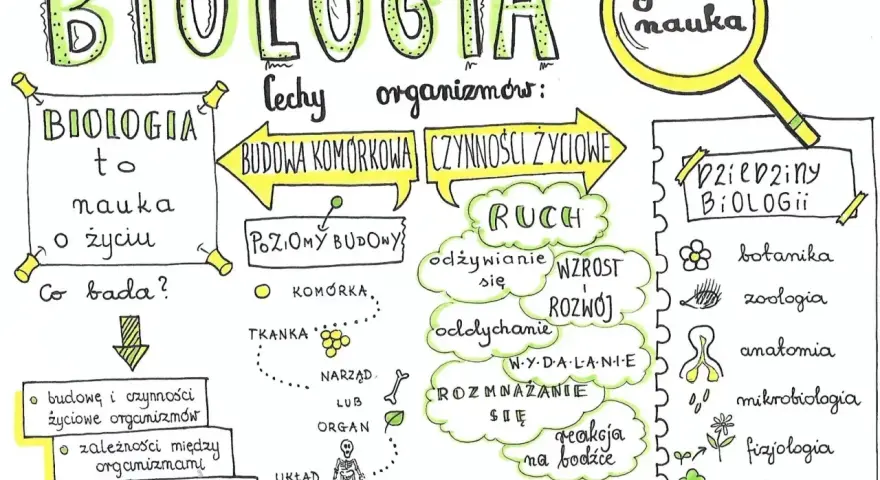 BIOLOGIA
nauka
Cechy organizmów:
BIOLOGIA
to
nauka
o życiu
Co bada?
budowę i czynności
życiowe organizmów
zależności między
organizmami
BUDOWA KOMÓRKOWA
POZIOMY BUDOWY
KOMÓRKA
TKANKA
NARZĄD
LUB
ORGAN
UKŁAD
CZYNNOŚCI ŻYCIOWE
RUCH
odżywianie
się
WZROST
i
ROZWÓJ
oddychanie
W·Y·D·A·L·A·N·I·E
ROZMNAŻANIE
SIĘ
reakcja
na bodźce
DZIEDZINY
BIOLOGII
botanika
zoologia
anatomia
mikrobiologia
fizjologia